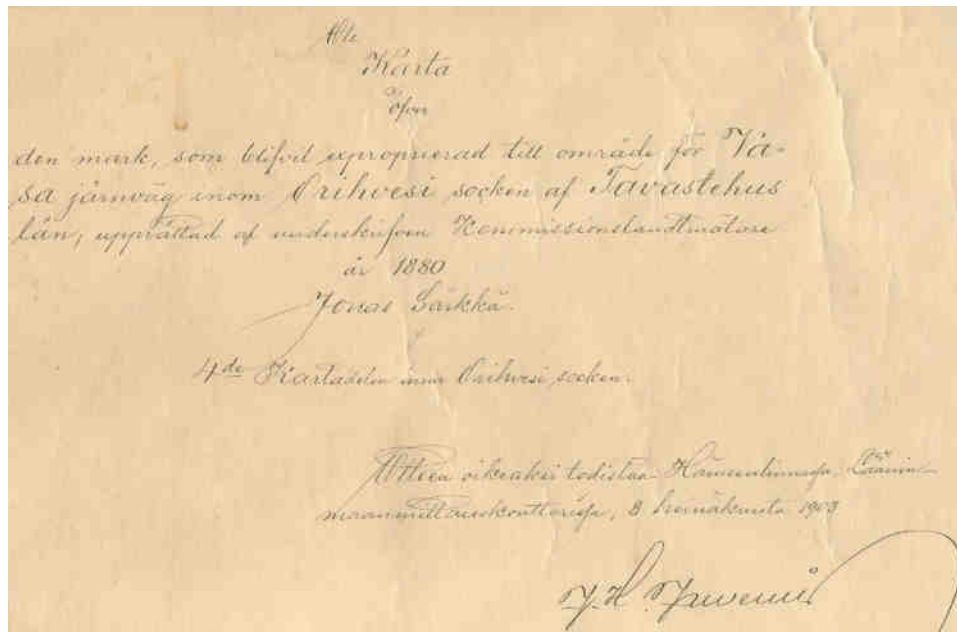 Ote
Karta
öfver
den mark, som blifvit exproprierad till område för Va-
sa järnväg inom Orihvesi socken af Tavastehus
län, upprättad af underskrifven Kommissionslandtmätare
år 1880
Jonas Särkkä.
4de Kartadelen inom Orihvesi socken.
Otteen oikeaksi todistaa Hämeenlinnassa, Läänin
maanmittauskonttorissa, 8 heinäkuuta 1903
J. H.